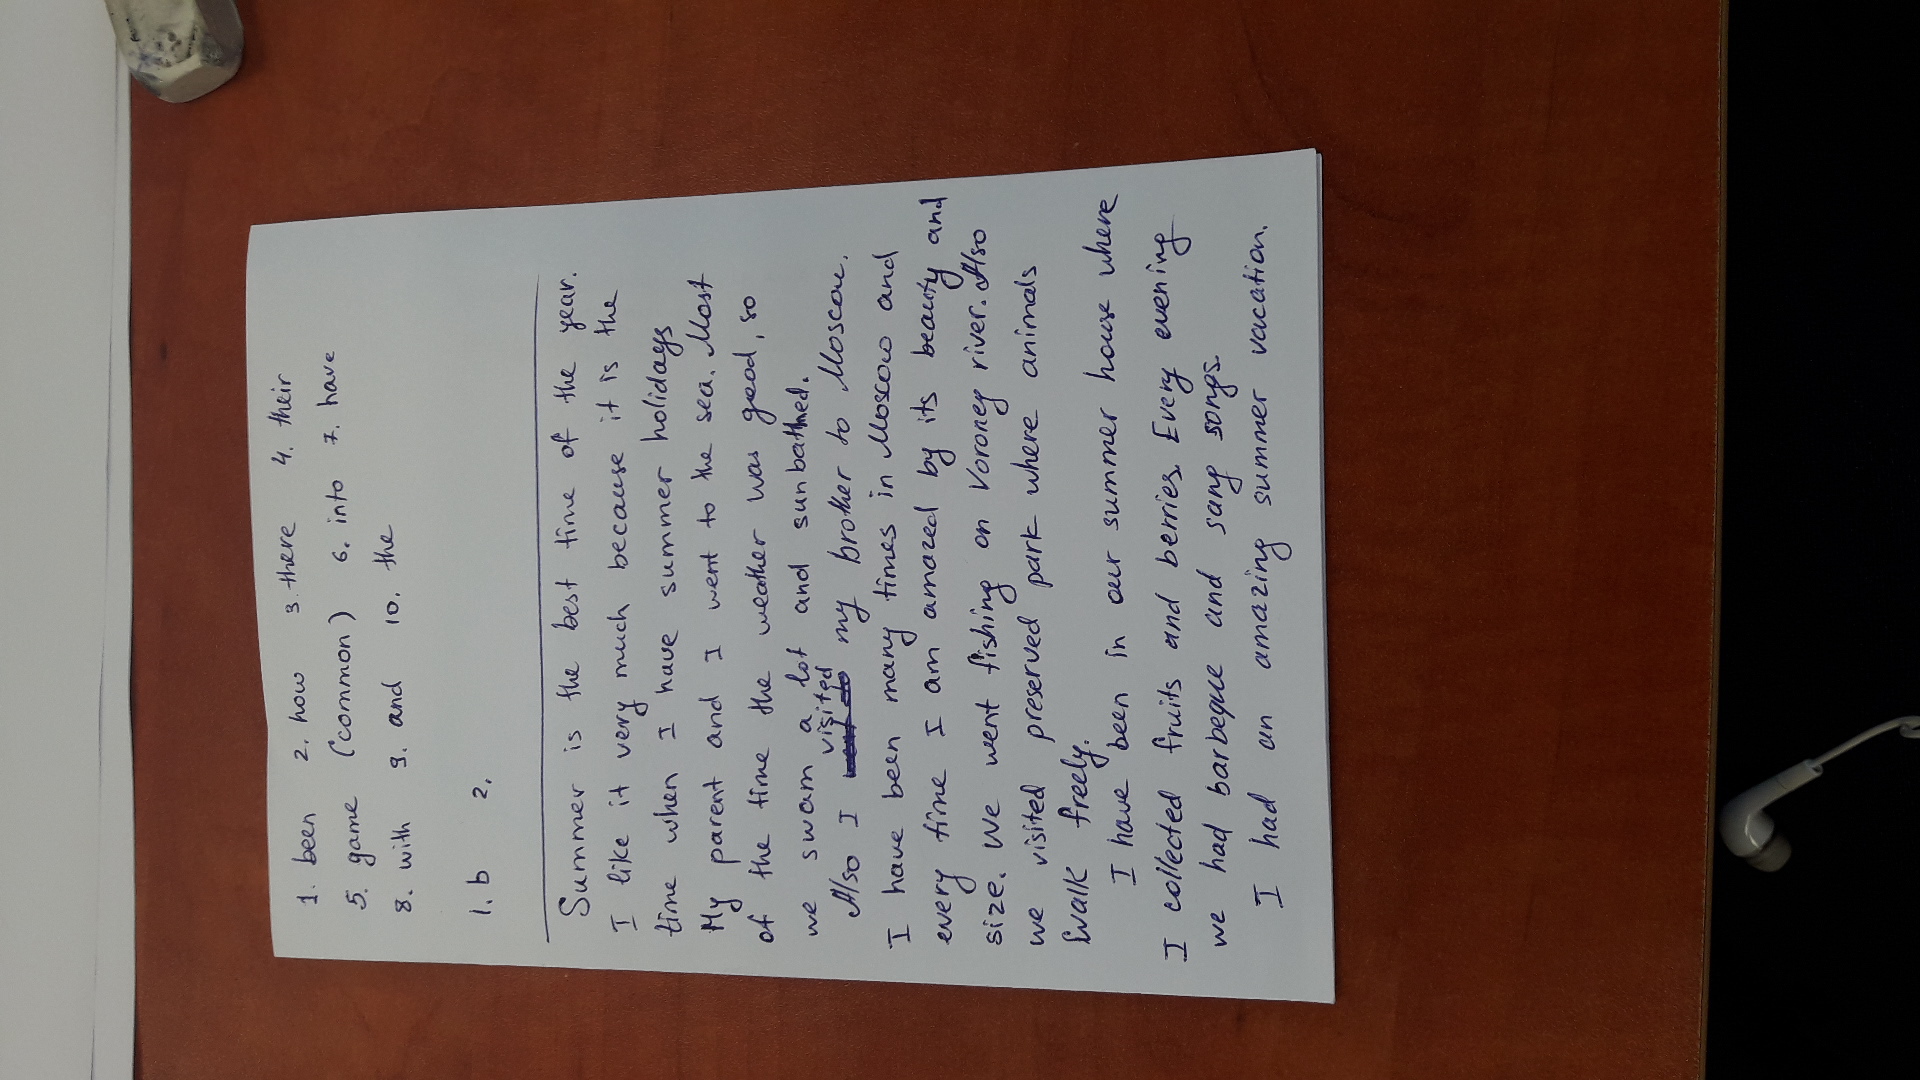 1. been 2. how 3. there 4. their
5. game (common) 6. into 7. have
8. with 9. and 10. the
1. b 2.
Summer is the best time of the year.
I like it very much because it is the
time when I have summer holidays
My parent and I went to the sea. Most
of the time the weather was good, so
we swam a lot and sunbathed.
Also I visited my brother to Moscow.
I have been many times in Moscow and
every time I am amazed by its beauty and
size. We went fishing on Voroney river. Also
we visited preserved park where animals
walk freely.
I have been in our summer house where
I collected fruits and berries. Every evening
we had barbeque and sang songs.
I had an amazing summer vacation.